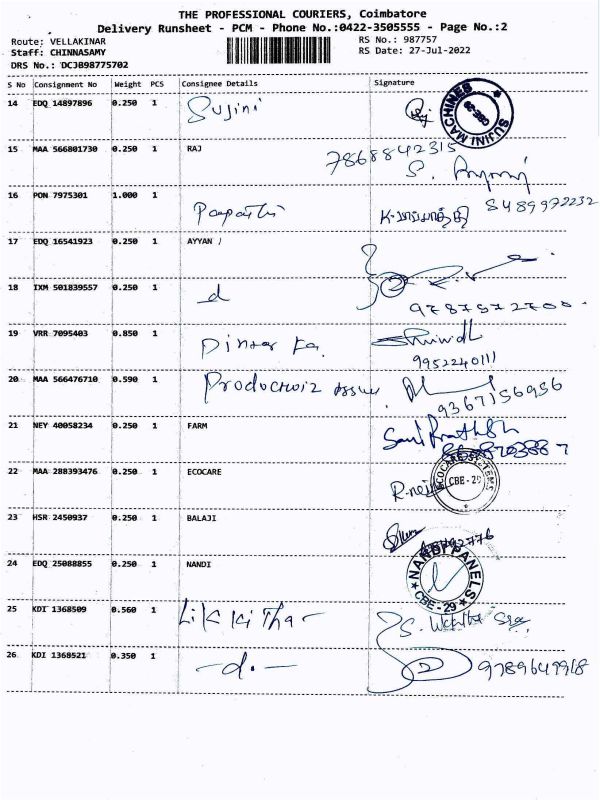 THE PROFESSIONAL COURIERS, Coimbatore
Delivery Runsheet - PCM - Phone No.:0422-3505555 - Page No.:2
Route: VELLAKINAR RS No.: 987757
Staff: CHINNASAMY RS Date: 27-Jul-2022
DRS No.: DCJB98775702
S No Consignment No Weight PCS Consignee Details Signature
14 EDQ 14897896 0.250 1 Sujini
SUJINI MACHINES
15 MAA 566801730 0.250 1 RAJ 7868842315
16 PON 7975301 1.000 1 8489972232
17 EDQ 16541923 0.250 1 AYYAN /
18 IXM 501839557 0.250 1 d 2
9787572700
19 VRR 7095403 0.850 1
9952240111
20 MAA 566476710 0.590 1 9367156956
21 NEY 40058234 0.250 1 FARM
22 MAA 288393476 0.250 1 ECOCARE
ECOCARE SYSTEMS CBE - 29
23 HSR 2450937 0.250 1 BALAJI
24 EDQ 25088855 0.250 1 NANDI
NANDI PANELS CBE - 29
25 KDI 1368509 0.560 1
26 KDI 1368521 0.350 1 -d.- 2 9789649918